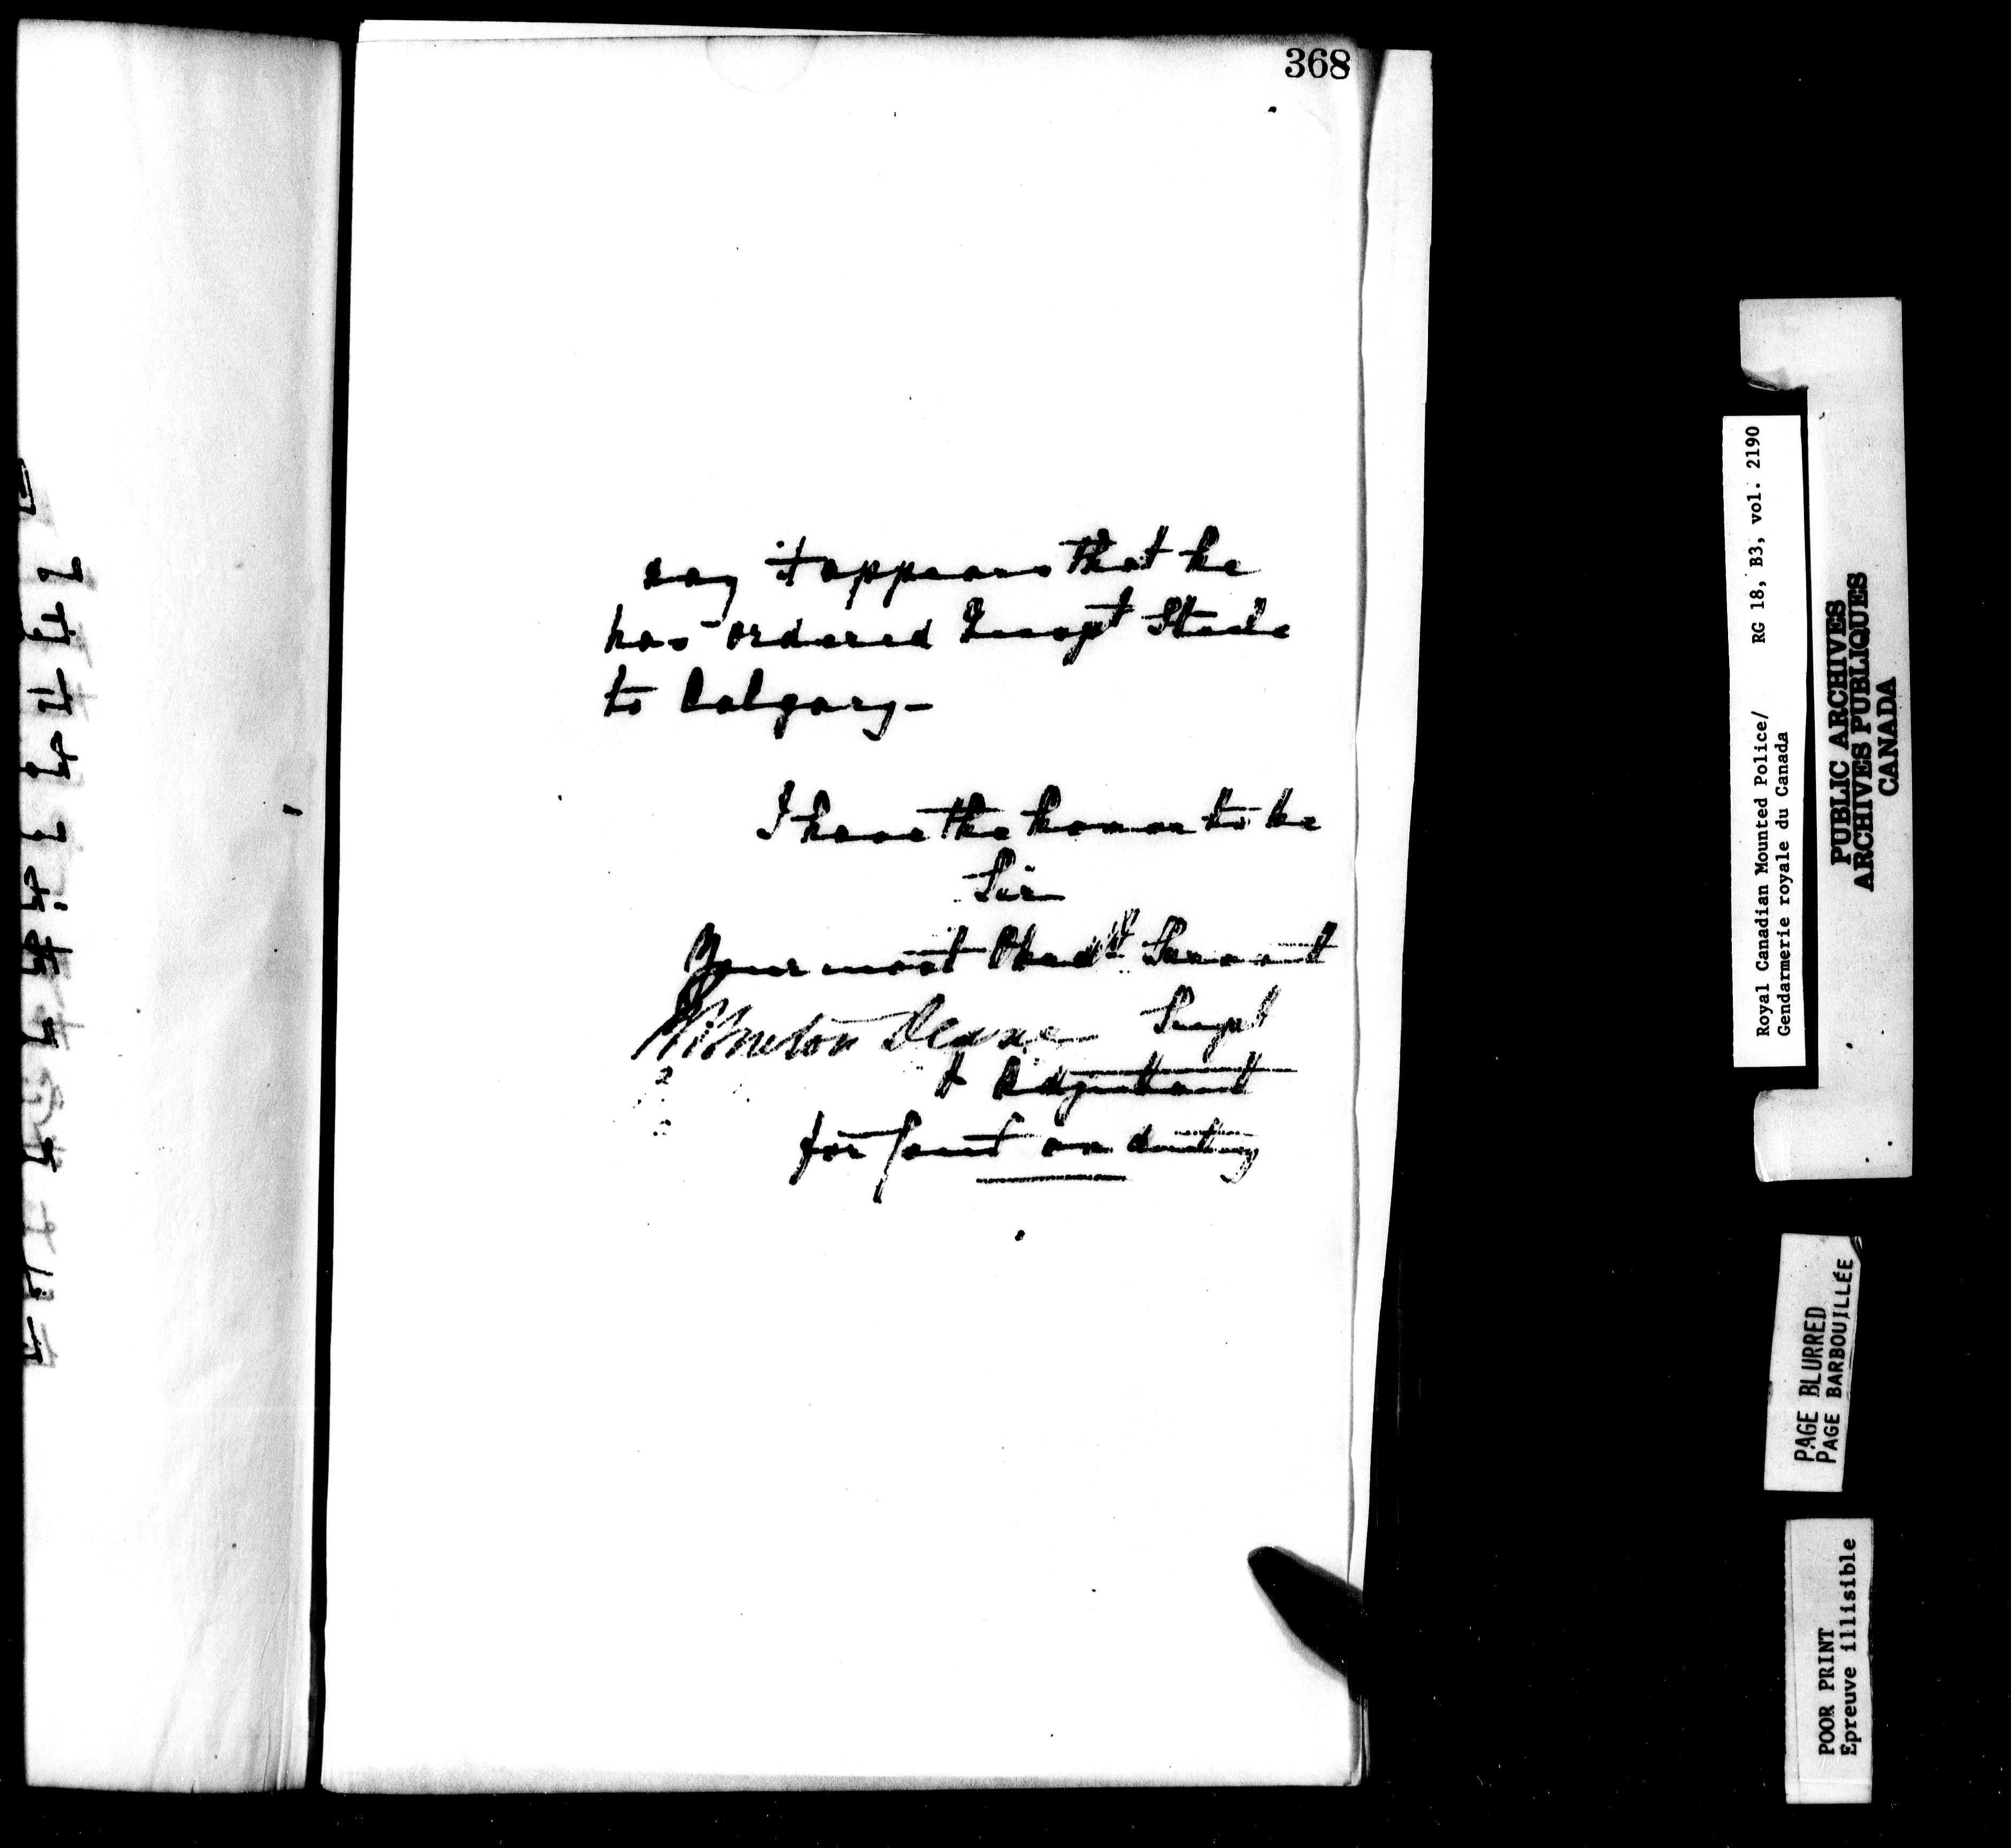 368
say it appears that he
has ordered Inspt Steele
to Calgary—
I have the honor to be
Sir
Your most Obedt Servant
R Burton Deane Supt
& Adjutant
for Comt on duty
Royal Canadian Mounted Police/ RG 18, B3, vol. 2190
Gendarmerie royale du Canada
PUBLIC ARCHIVES
ARCHIVES PUBLIQUES
CANADA
PAGE BLURRED
PAGE BARBOUILLÉE
POOR PRINT
Epreuve illisible